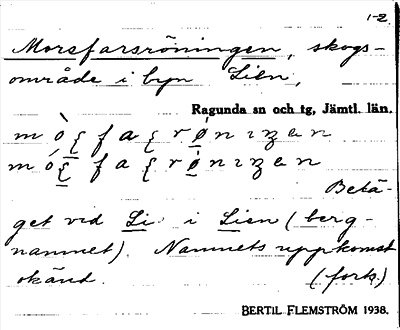 1-2.
Morsfarsröningen, skogs-
område i byn Lien,
Ragunda sn och tg, Jämtl. län.
Belä-
get vid Li i Lien (berg-
namnet). Namnets uppkomst
okänd. (forts)
BERTIL FLEMSTRÖM 1938.